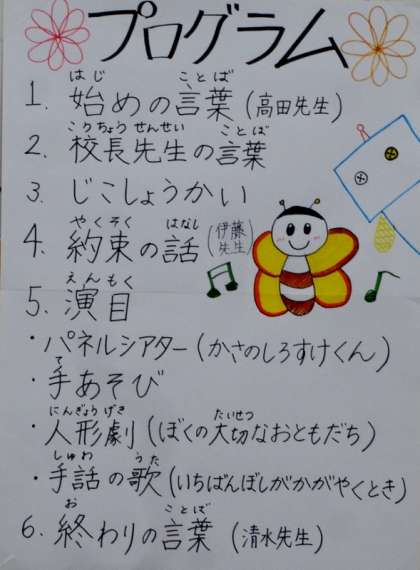 プログラム
はじ ことば
1. 始めの言葉(高田先生)
こうちょうせんせい ことば
2. 校長先生の言葉
3. じこしょうかい
やくそく はなし
4. 約束の話(伊藤先生)
えんもく
5. 演目
・パネルシアター(かさのしろすけくん)
て
・手あそび
にんぎょうげき たいせつ
・人形劇(ぼくの大切なおともだち)
しゅわ うた
・手話の歌(いちばんぼしがかがやくとき)
お ことば
6. 終わりの言葉(清水先生)